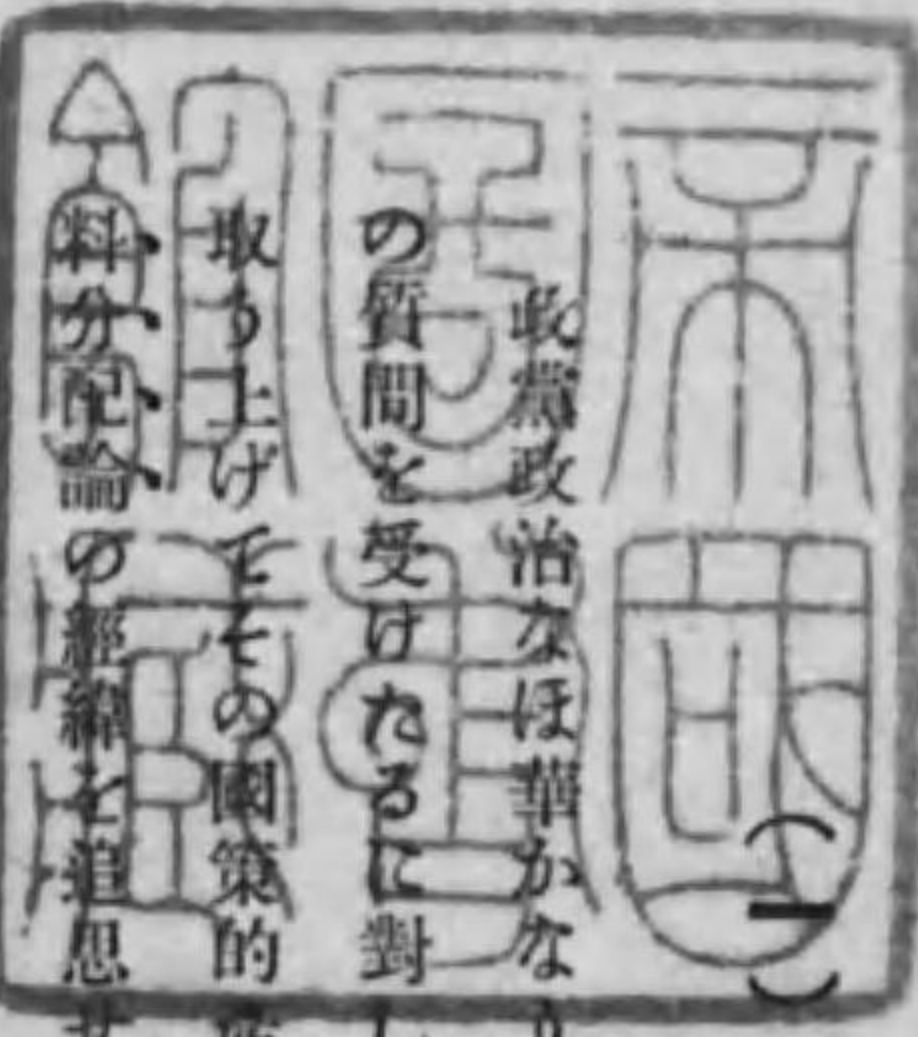 帝國
圖書
館藏
(一)
政黨政治なほ華かなり
の質問を受けたるに對し
取り上げてその國策的
料分配論の經緯を追思せ